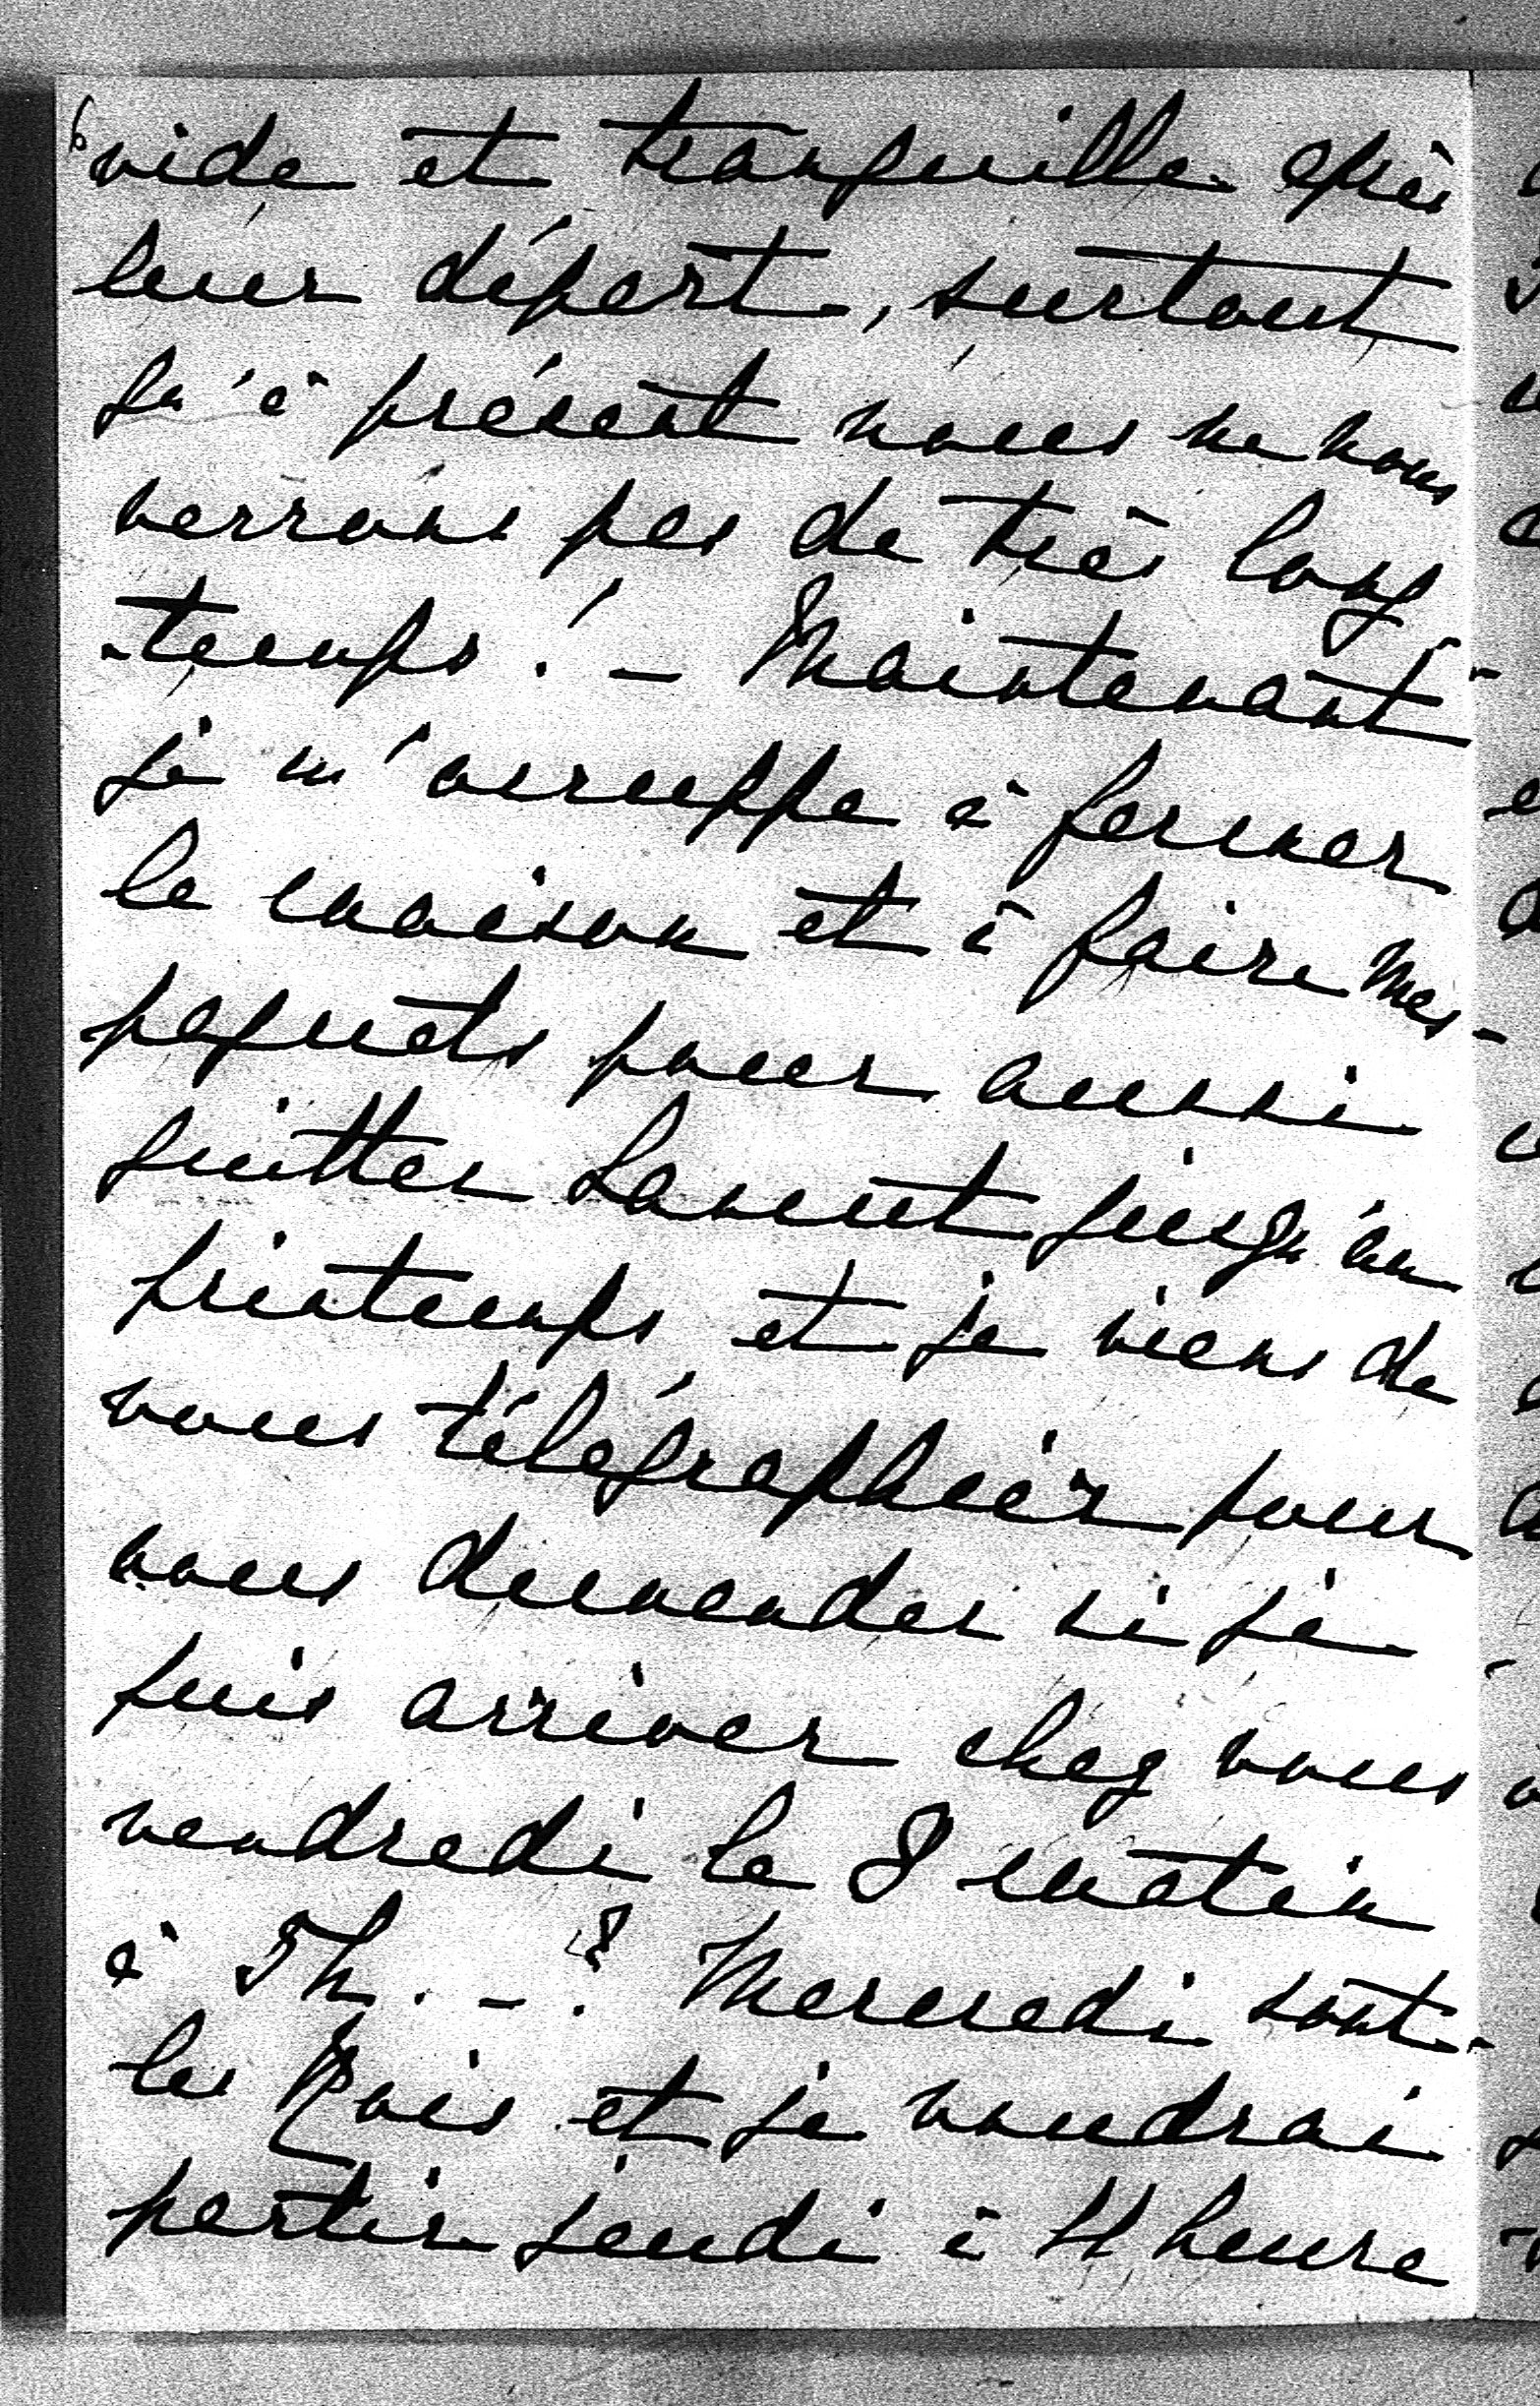 6
vide et tranquille après
leur départ, surtout
qu'à présent nous ne nous
verrons pas de très long
-temps! – Maintenant
je m'occuppe à fermer
la maison et à faire mes
paquets pour aussi
quitter jusqu'au
printemps et je viens de
vous télégraphier pour
vous demander si je
puis arriver chez vous
vendredi le 8 matin
à Th. – ? Mercredi sont
les Rois et je voudrai
partir jeudi à 4 heure